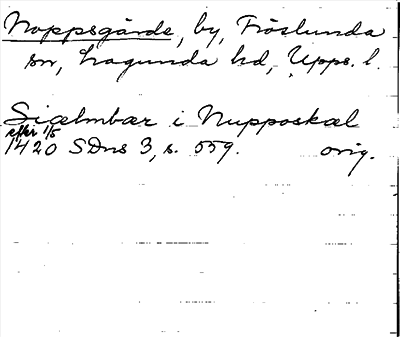 Noppsgärde, by, Fröslunda
sn, Lagunda hd, Upps. l.
Sicelmbær i Nupposkæl
efter 1/5
1420 SDns 3, s. 559. orig.